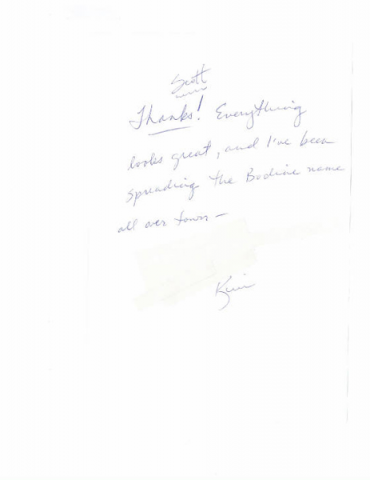 Scott
Thanks! Everything
looks great, and I've been
spreading the Bodine name
all over town —
Kim